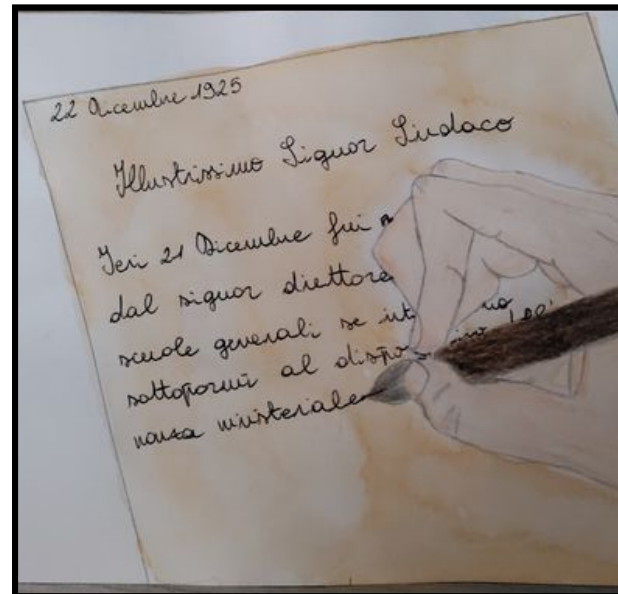 22 Dicembre 1925
Illustrissimo Signor Sindaco
Ieri 21 Dicembre fui
dal signor direttore
scuole generali se
sottopormi al
ministeriale